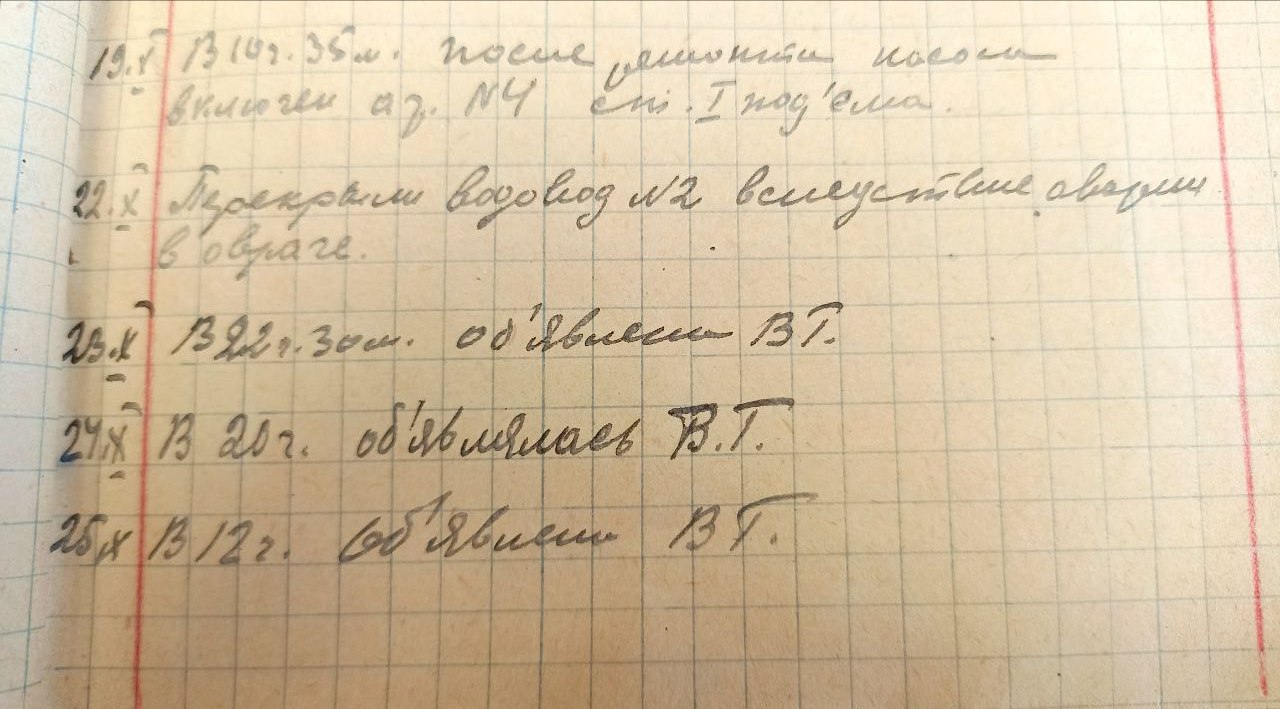 19.X В 10ч. 35м. после ремонта насоса
включен аг. N4 ст. I под'ема.
22.X Перекрыли водовод N2 вследствие аварии
в овраге.
23.X В 22ч. 30м. об'явлена ВТ.
24.X В 20ч. об'являлась В.Т.
25.X В 12ч. Об'явлена ВТ.